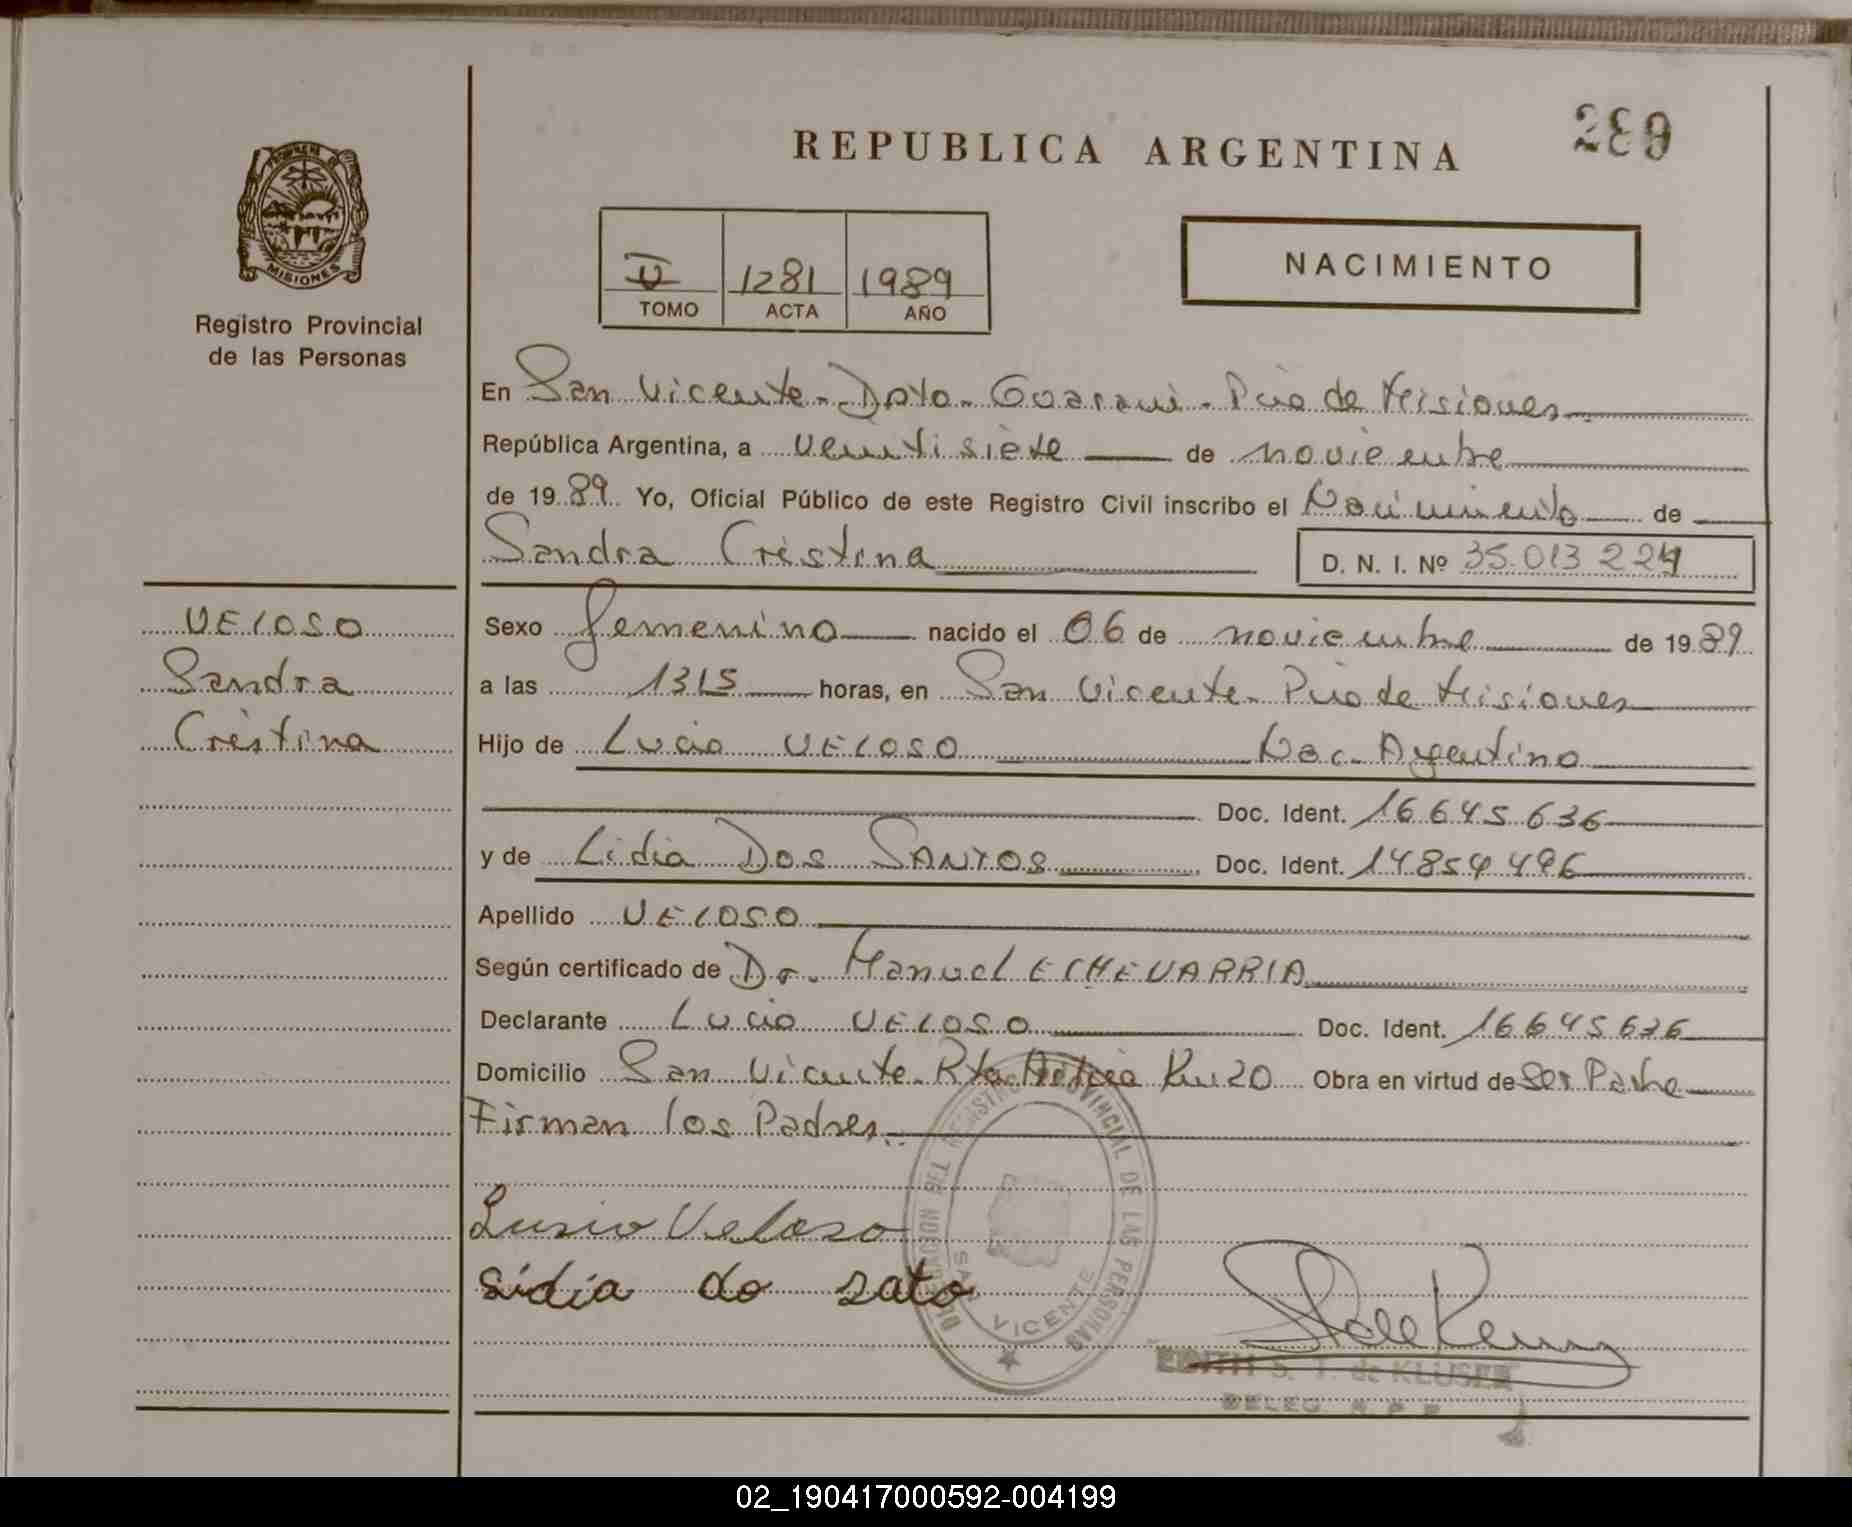 REPUBLICA ARGENTINA
289
PROVINCIA DE
MISIONES
Registro Provincial
de las Personas
V 1281 1989
TOMO ACTA AÑO
NACIMIENTO
En San Vicente - Dpto - Guarani - Pcia de Misiones
República Argentina, a veintisiete de noviembre
de 1989 Yo, Oficial Público de este Registro Civil inscribo el Nacimiento de
Sandra Cristina
D. N. I. Nº 35.013 224
VELOSO
Sandra
Cristina
Sexo femenino nacido el 06 de noviembre de 1989
a las 1315 horas, en San Vicente - Pcia de Misiones
Hijo de Lucio VELOSO Nac. Argentino
Doc. Ident. 16645636
y de Lidia DOS SANTOS Doc. Ident. 14854496
Apellido VELOSO
Según certificado de Dr. Manuel ECHEVARRIA
Declarante Lucio VELOSO Doc. Ident. 16645636
Domicilio San Vicente - Rta Km 20 Obra en virtud de Ser Padre
Firman los Padres.
Lusio Veloso
Sidia do sato
DELEGACION DEL REGISTRO PROVINCIAL DE LAS PERSONAS
SAN VICENTE
EDITH S. T. de KLUSER
DELEG. R. P. P.
02_190417000592-004199